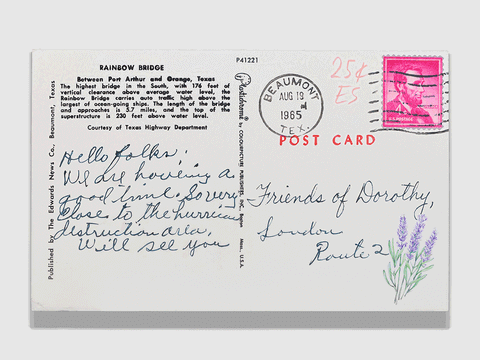 P41221
RAINBOW BRIDGE
Between Port Arthur and Orange, Texas
The highest bridge in the South, with 176 feet of
vertical clearance above average water level,
Rainbow Bridge carries auto traffic high above the
largest of ocean-going ships. The length of the bridge
and approaches is 5.7 miles, and the top of the
superstructure is 230 feet above water level.
Courtesy of Texas Highway Department
Published by The Edwards News Co., Beaumont, Texas
Plastichrome ® by COLOURPICTURE PUBLISHERS, INC., Boston Mass. U.S.A.
BEAUMONT
AUG 19
1965
TEX.
25¢
ES
U.S. POSTAGE
POST CARD
Hello folks,
We are having a
good time. So very
close to the hurricane
destruction area.
Will see you
Friends of Dorothy,
London
Route 2